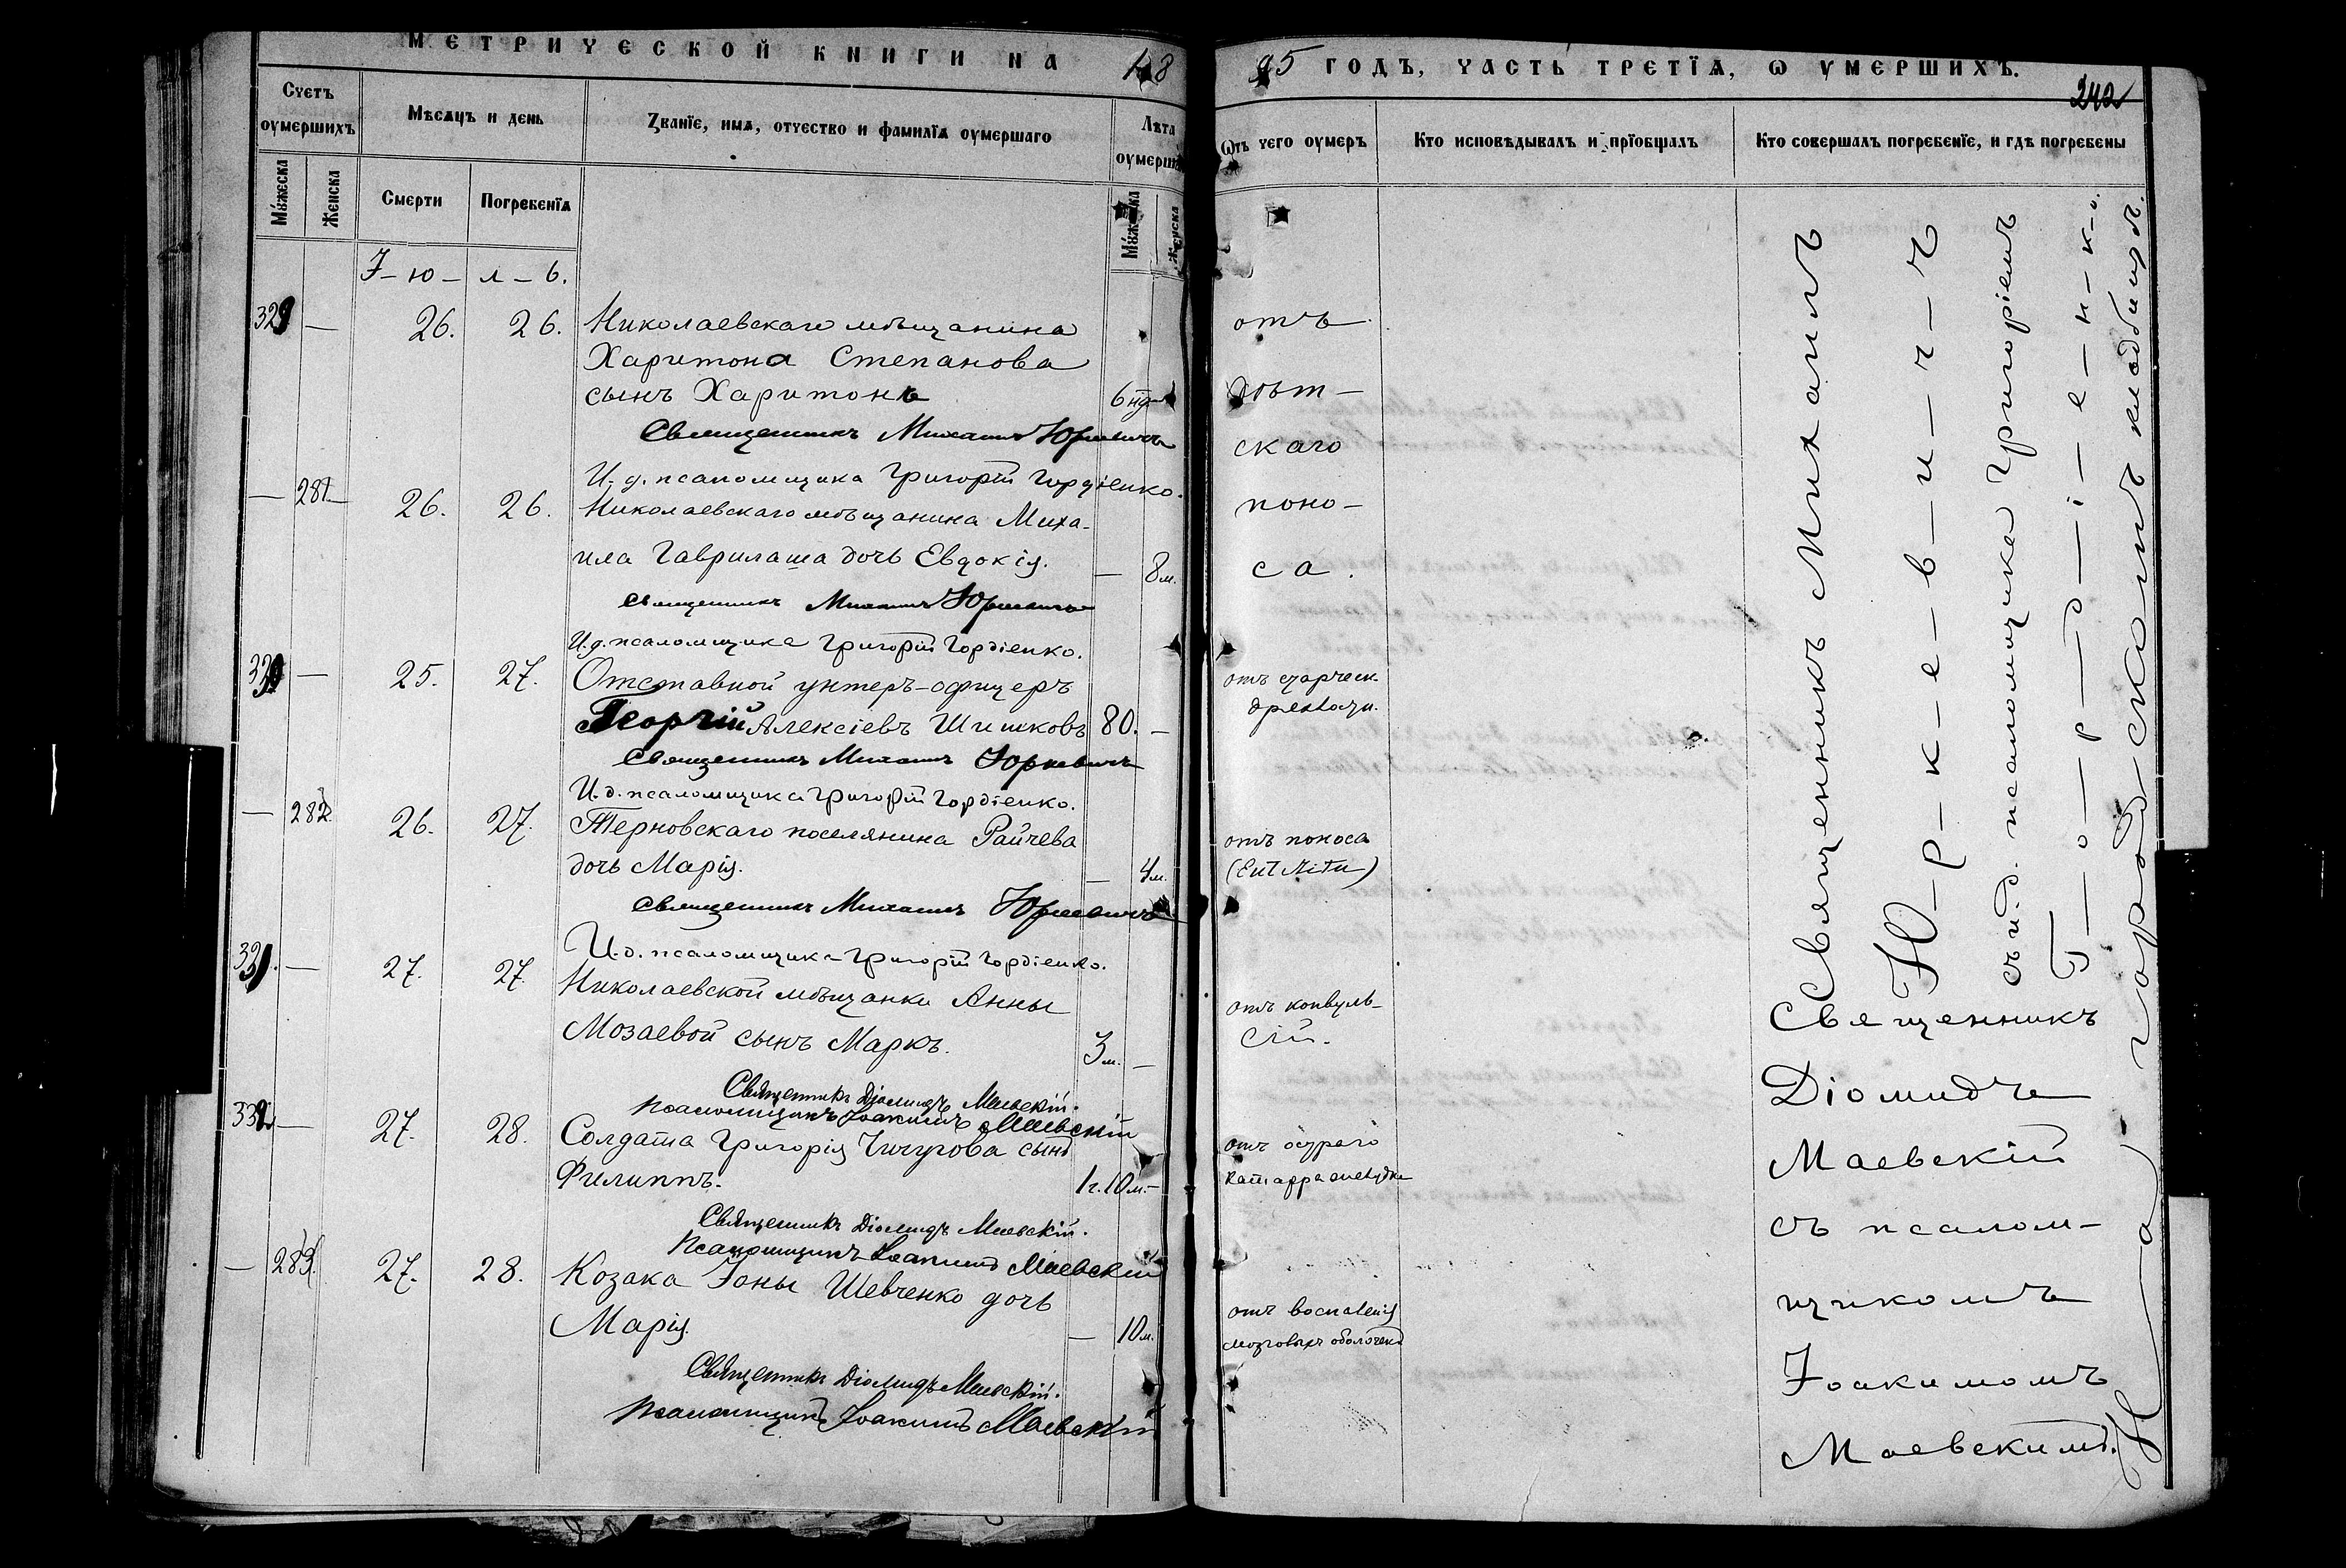 МЕТРИЧЕСКОЙ КНИГИ НА 18
Счетъ оумершихъ
Мѣсяцъ и день
Званїе, имя, отчество и фамилїя оумершаго
Лѣта оумершихъ
Мꙋжеска
Женска
Смерти
Погребенїя
Мꙋжеска
Женска
І-ю-л-ь.
329 — 26. 26. Николаевскаго мѣщанина
Харитона Степанова
сынъ Харитонъ 6 нд.
Священникъ Михаилъ Юркевичъ
И. д. псаломщика Григорій Гордіенко.
— 281 26. 26. Николаевскаго мѣщанина Миха-
ила Гаврилаша дочь Евдокія. — 8 м.
Священникъ Михаилъ Юркевичъ
И. д. псаломщика Григорій Гордіенко.
330 — 25. 27. Отставной унтеръ-офицеръ
Георгій Алексіевъ Шишковъ 80. —
Священникъ Михаилъ Юркевичъ
И. д. псаломщика Григорій Гордіенко.
— 282 26. 27. Терновскаго поселянина Райчева
дочь Марія. — 4 м.
Священникъ Михаилъ Юркевичъ
И. д. псаломщика Григорій Гордіенко.
331. — 27. 27. Николаевской мѣщанки Анны
Мозаевой сынъ Маркъ. 3 м. —
Священникъ Діомидъ Маевскій.
Псаломщикъ Іоакимъ Маевскій
332. — 27. 28. Солдата Григорія Чичугова сынъ
Филиппъ. 1 г. 10 м. —
Священникъ Діомидъ Маевскій.
Псаломщикъ Іоакимъ Маевскій
— 283. 27. 28. Козака Іоны Шевченко дочь
Марія. — 10 м.
Священникъ Діомидъ Маевскій.
Псаломщикъ Іоакимъ Маевскій
95 ГОДЪ, ЧАСТЬ ТРЕТЇЯ, Ѡ УМЕРШИХЪ.
242
Ѿтъ чего оумеръ
Кто исповѣдывалъ и прїобщалъ
Кто совершалъ погребенїе, и гдѣ погребены
отъ
дѣт-
скаго
поно-
са.
отъ старческ.
дряхлости.
отъ поноса
отъ конвуль-
сій.
отъ остраго
катарра желудка
отъ воспаленія
мозговыхъ оболочекъ
Священникъ Михаилъ
Ю-р-к-е-в-и-ч-ъ
съ и. д. псаломщика Григоріемъ
Г-о-р-д-і-е-н-к-о.
Священникъ
Діомидъ
Маевскій
съ псалом-
щикомъ
Іоакимомъ
Маевскимъ.
На городскомъ кладбищѣ.